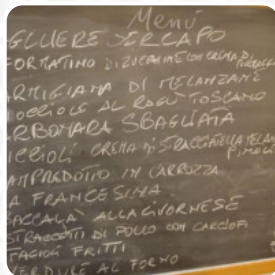 Menù
GLIERE DERCAPO
FORMATINO DI ZUCCHINE CON CREMA DI
ARMIGIANA DI MELANZANE
OCCIOLE AL RAGU TOSCANO
ARBONARA SBAGLIATA
ICCIOLI CREMA DI STRACCIATELLA MELAN
PINOLI
AMPREDOTTO IN CARROZZA
A FRANCESINA
BACCALA' ALLA LIVORNESE
STRACCETTI DI POLLO CON CARCIOFI
TAGIOLI FRITTI
VERDURE AL FORNO